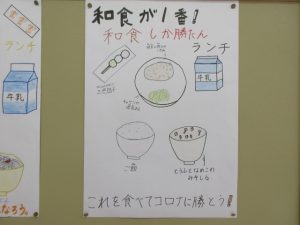 和食が1番!
和食しか勝たん
ランチ
牛乳
ご飯
とうふとなめこの
みそしる
これを食べてコロナに勝とう!
ランチ
牛乳
なろう。